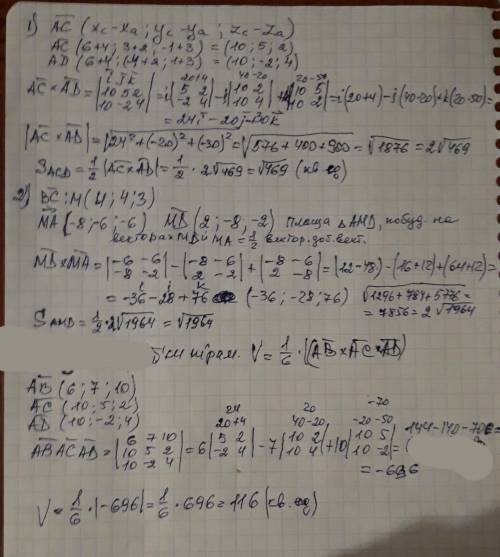 1) AC (xc - xa ; yc - ya ; zc - za)
AC (6+4 ; 3+2 ; -1+3) = (10 ; 5 ; 2)
AD (6+4 ; (-4+2 ; 1+3) = (10 ; -2 ; 4)
AC × AD = |i j k; 10 5 2; 10 -2 4| = i |5 2; -2 4| - j |10 2; 10 4| + k |10 5; 10 -2| = i(20+4) - j(40-20) + k(-20-50) =
20+4 40-20 -20-50
= 24i - 20j - 30k
|AC × AD| = √24² + (-20)² + (-30)² = √576 + 400 + 900 = √1876 = 2√469
S ACD = 1/2 |AC × AD| = 1/2 · 2√469 = √469 (кв. ед)
2) BC : M (4 ; 4 ; 3)
MA (-8 ; -6 ; -6) MD (2 ; -8 ; -2) площа Δ AMD, побуд. на
векторах MD и MA = 1/2 вектор. доб. вект.
MD × MA = |-6 -6; -8 -2| - |-8 -6; 2 -2| + |-8 -6; 2 -8| = (12-48) - (16+12) + (64+12) =
= -36 i - 28 j + 76 k (-36 ; -28 ; 76) √1296 + 784 + 5776 =
= 7856 = 2√1964
S AMD = 1/2 · 2√1964 = √1964
V = 1/6 · |(AB × AC × AD)
AB (6 ; 7 ; 10)
AC (10 ; 5 ; 2)
AD (10 ; -2 ; 4)
24 20 -70
20+4 40-20 -20-50
AB AC AD = |6 7 10; 10 5 2; 10 -2 4| = 6 |5 2; -2 4| - 7 |10 2; 10 4| + 10 |10 5; 10 -2| = 144 - 140 - 700 =
= -696
V = 1/6 · |-696| = 1/6 · 696 = 116 (кв. ед)